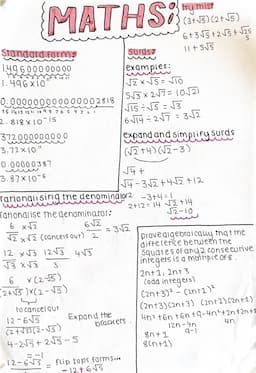 MATHS:
try this!
(3+√5)(2+√5)
6+3√5+2√5+√25
11+5√5
Standard form:
1496000000000
1.496×10
0.0000000000000002818
2.818×10⁻¹⁵
372000000000
3.72×10¹¹
0.00000387
3.87×10⁻⁶
Surds:
examples:
√2 × √5 = √10
5√3 × 2√7 = 10√21
√15 ÷ √5 = √3
6√14 ÷ 2√7 = 3√2
expand and simplify surds
(√2+4)(√2-3)
√4+
√4-3√2+4√2+12
-3+4=1
2+12=14
√2+14
√2-10
rationalising the denominator
rationalise the denominator:
6 × √2
√2 × √2 (cancels out)
6√2
2
= 3√2
12 × √3
√3 × √3
12√3
3
4√3
6 × (2-√5)
(2+√5) × (2-√5)
to cancel out
12-6√5
(2+√5)(2-√5)
Expand the
brackets
4-2√5+2√5-5
= -1
12-6√5 = flip tops forms...
-12+6√5
prove algebraically that the
difference between the
squares of any 2 consecutive
integers is a multiple of 8.
2n+1, 2n+3
(odd integers)
(2n+3)² - (2n+1)²
(2n+3)(2n+3) (2n+1)(2n+1)
4n²+6n+6n+9-4n²+2n+2n+1
12n-4n
9-1
4n
8n+1
8(n+1)